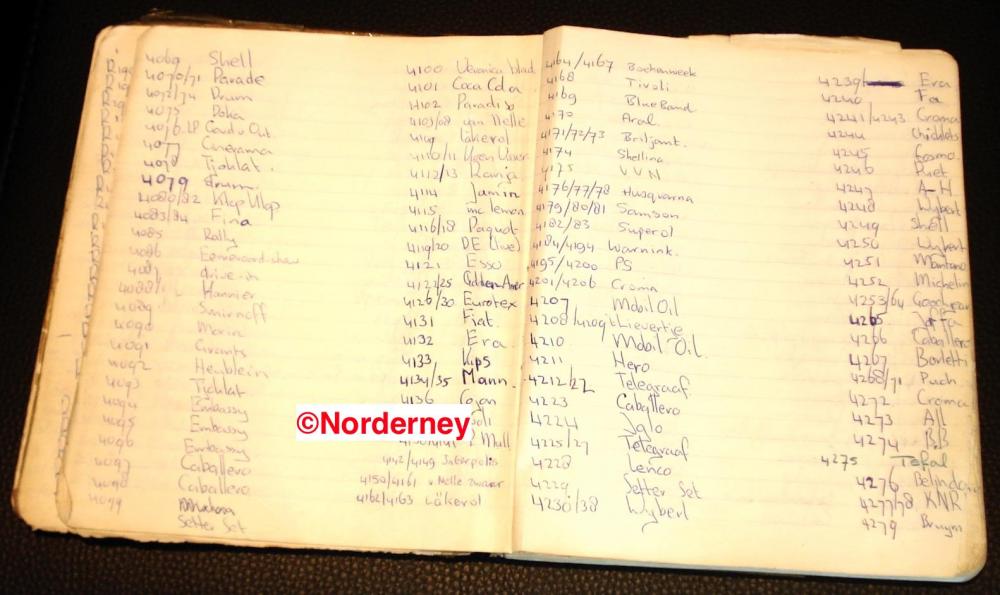 4069 Shell
4070/71 Parade
4072/74 Drum
4075 Doka
4076 LP Goud v Out.
4077 Cinerama
4078 Ticklat.
4079 Drum
4080/82 Klop Klop
4083/84 Fina
4085 Rally
4086
4087 drive-in
4088 Hannier
4089 Smirnoff
4090 Marin
4091 Grants
4092 Heublein
4093 Ticklat
4094 Embassy
4095 Embassy
4096 Embassy
4097 Caballero
4098 Caballero
4099
Setter Set
4100 Veronica blad
4101 Coca Cola
4102 Paradiso
4103/08 van Nelle
4109 Läkerol
4110/11
4112/13 Ranja
4114 Jamin
4115 mc lemon
4116/18 Paquot
4119/20 DE
4121 Esso
4122/25 Golden Amer
4126/30 Eurotex
4131 Fiat.
4132 Era
4133 Kips
4134/35 Mann.
4136
©Norderney
4142/4149 Interpolis
4150/4161 v Nelle zwaar
4162/4163 Läkerol
4164/4167 Boekenweek
4168 Tivoli
4169 BlueBand
4170 Aral
4171/72/73 Briljant.
4174 Shellina
4175 VVN
4176/77/78 Husquarna
4179/80/81 Samson
4182/83 Superol
4184/4194 Warnink.
4195/4200 PS
4201/4206 Croma
4207 Mobil Oil
4208/4209 't Lievertje
4210 Mobil Oil.
4211 Hero
4212/22 Telegraaf
4223 Caballero
4224 Iglo
4225/27 Telegraaf
4228 Lenco
4229 Setter Set
4230/38 Wybert
4239 Era
4240 Fa
4241/4243 Croma
4244 Chiclets
4245 Cosmo
4246 Ruet
4247 A-H
4248 Wybert
4249 Shell
4250 Wybert
4251 Montano
4252 Michelin
4253/64 Goodyear
4265 Jaffa
4266 Caballero
4267 Barletti
4268/71 Puch
4272 Croma
4273 All
4274 BB
4275 Tefal
4276 Belinda
4277/78 KNR
4279 Bruyn